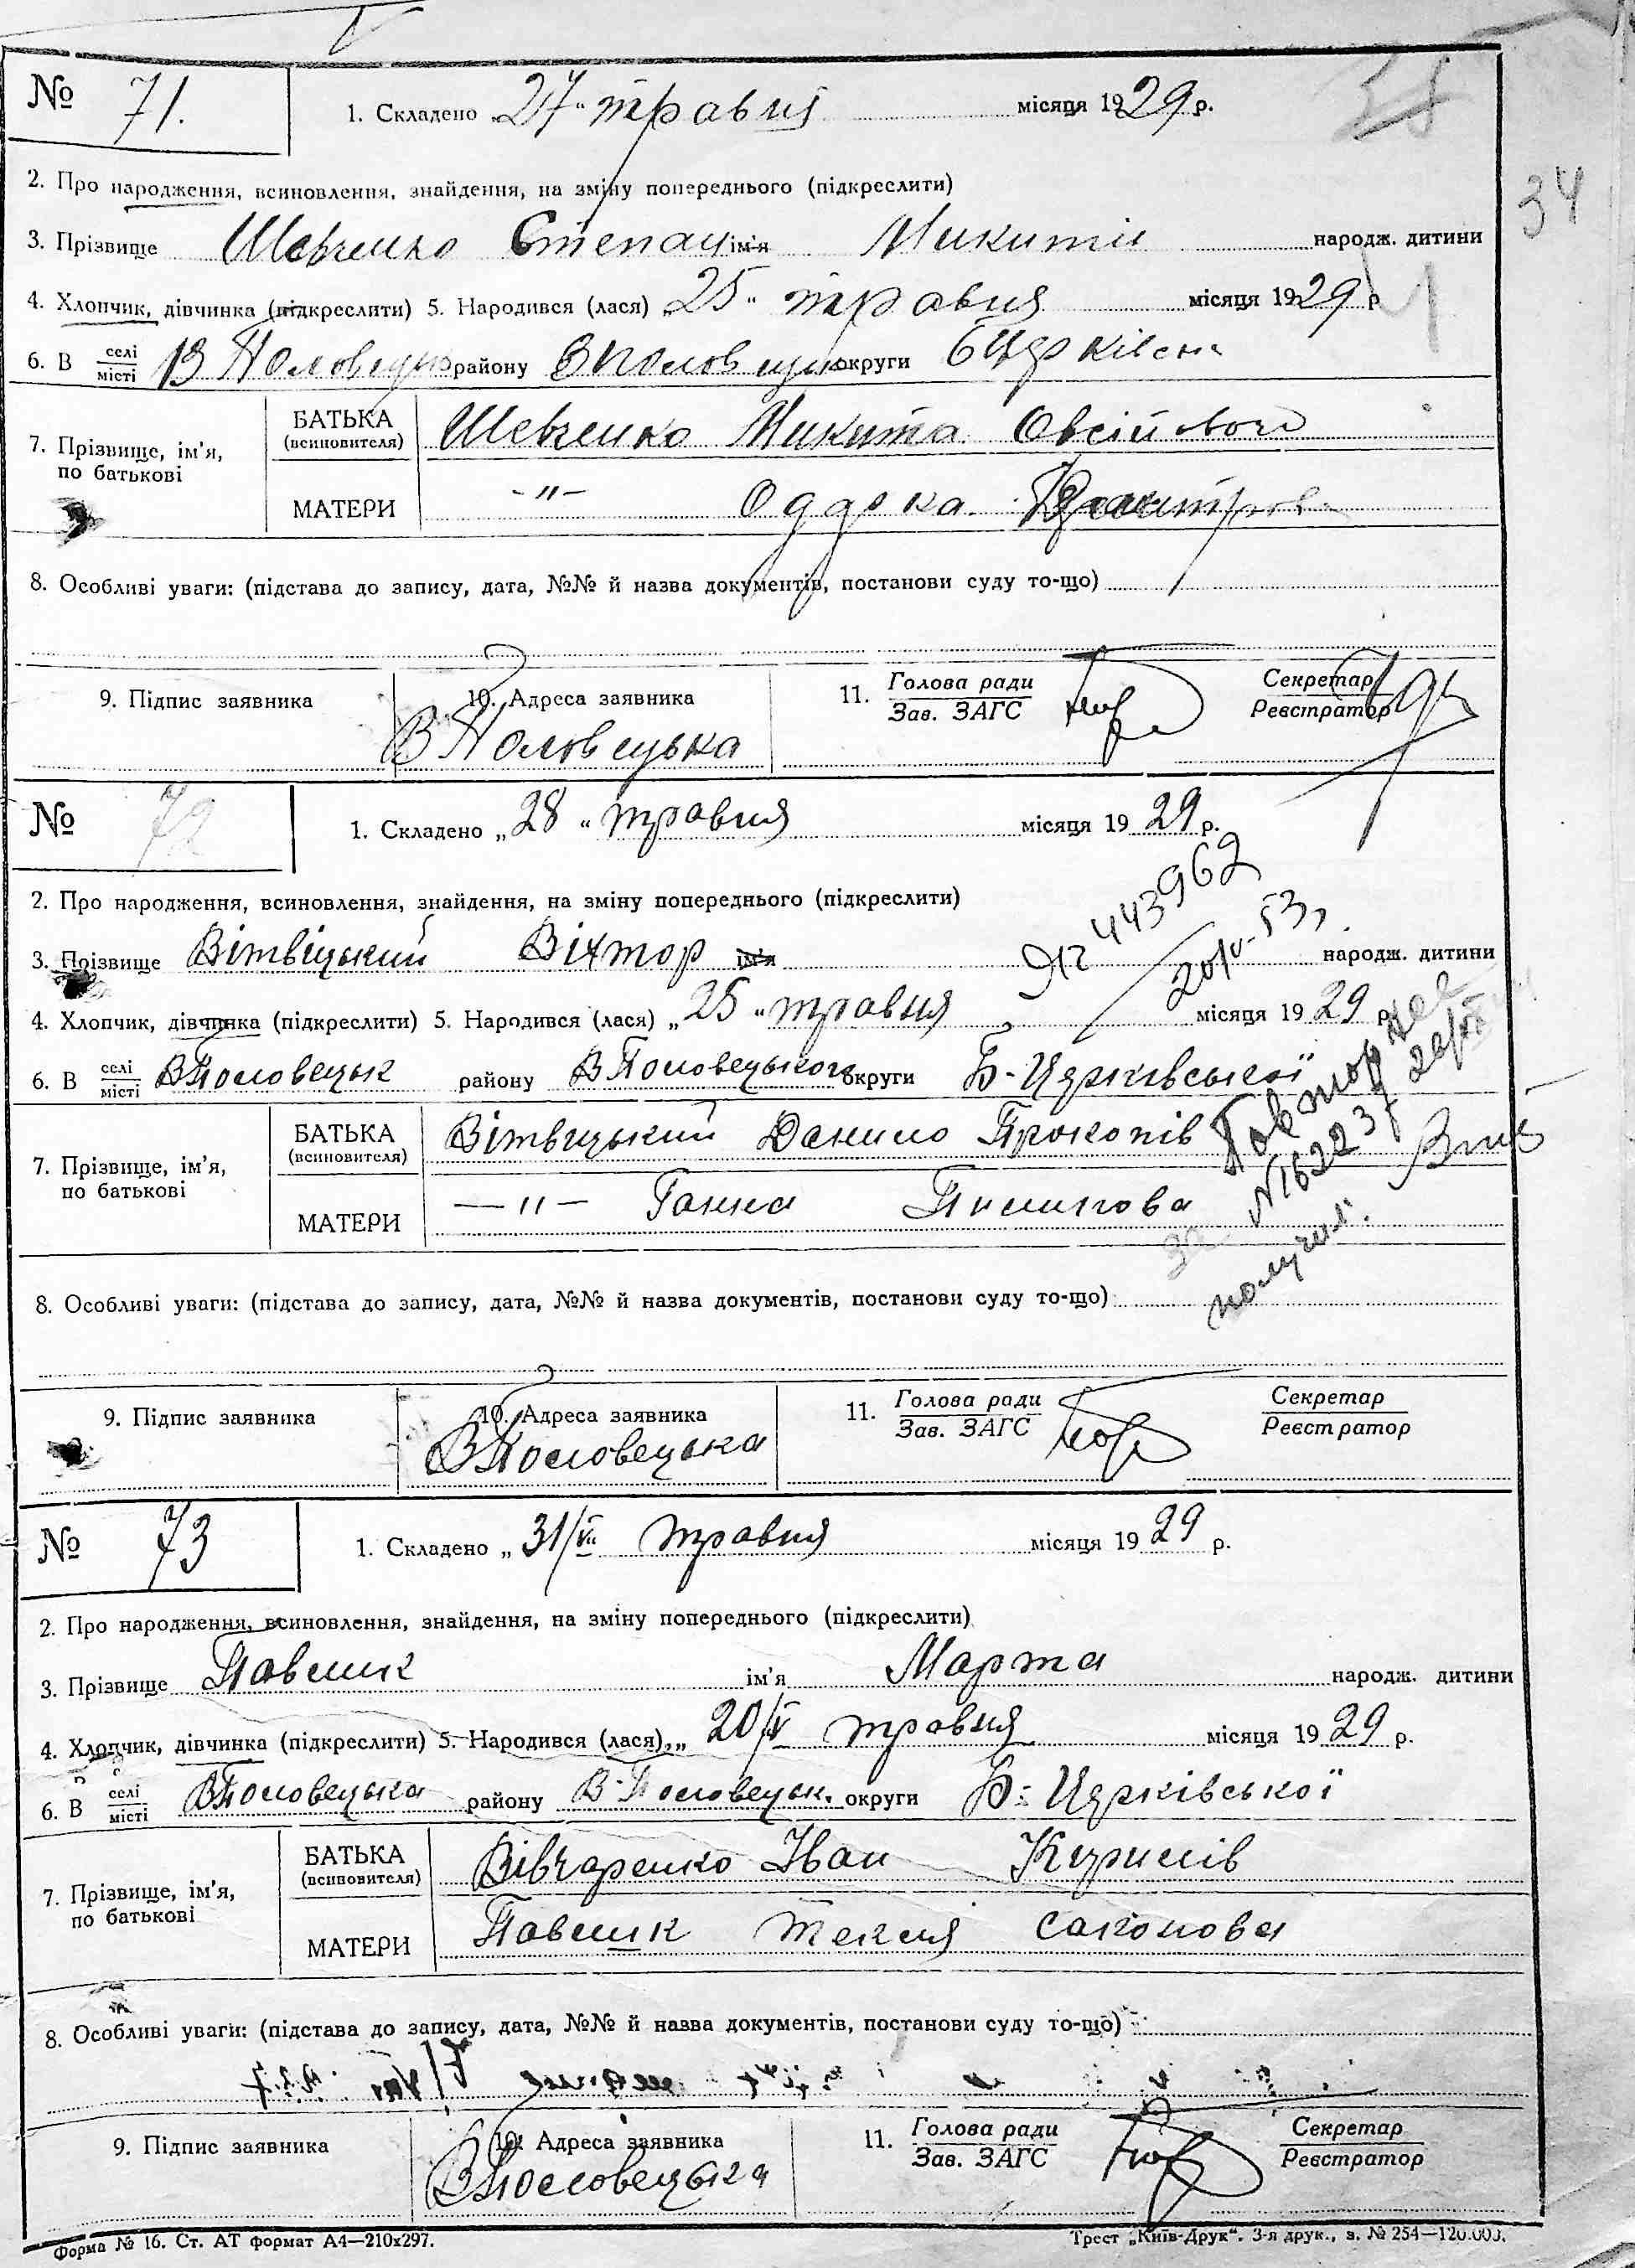 № 71. 1. Складено „27“ травня місяця 1929 р.
34
2. Про народження, всиновлення, знайдення, на зміну попереднього (підкреслити)
3. Прізвище Шевченко Степан ім'я Микитів народж. дитини
4. Хлопчик, дівчинка (підкреслити) 5. Народився (лася) „25“ травня місяця 1929 р.
6. В селі місті В Половецьк району В Половецьк округи БЦерківськ
7. Прізвище, ім'я, по батькові
БАТЬКА (всиновителя) Шевченко Микита Овсійович
МАТЕРИ -"- Оддрка
8. Особливі уваги: (підстава до запису, дата, №№ й назва документів, постанови суду то-що)
9. Підпис заявника 10. Адреса заявника 11. Голова ради Зав. ЗАГС Секретар Реєстратор
В Половецька
№ 72 1. Складено „28“ травня місяця 1929 р.
443962
2. Про народження, всиновлення, знайдення, на зміну попереднього (підкреслити)
3. Прізвище Вітвіцький Віктор ім'я народж. дитини
4. Хлопчик, дівчинка (підкреслити) 5. Народився (лася) „25“ травня місяця 1929 р.
6. В селі місті ВПоловецьк району ВПоловецького округи Б-Церківської
Повторное
за №162237
получил.
7. Прізвище, ім'я, по батькові
БАТЬКА (всиновителя) Вітвіцький Данило Прокопів
МАТЕРИ —"— Ганна Пилипова
8. Особливі уваги: (підстава до запису, дата, №№ й назва документів, постанови суду то-що)
9. Підпис заявника 10. Адреса заявника 11. Голова ради Зав. ЗАГС Секретар Реєстратор
ВПоловецька
№ 73 1. Складено „31/V“ травня місяця 1929 р.
2. Про народження, всиновлення, знайдення, на зміну попереднього (підкреслити)
3. Прізвище Павлик ім'я Марта народж. дитини
4. Хлопчик, дівчинка (підкреслити) 5. Народився (лася) „20/V травня місяця 1929 р.
6. В селі місті ВПоловецька району В-Половецьк. округи Б-Церківської
7. Прізвище, ім'я, по батькові
БАТЬКА (всиновителя) Вівчаренко Іван Кирилів
МАТЕРИ Павлик Текля Сахонова
8. Особливі уваги: (підстава до запису, дата, №№ й назва документів, постанови суду то-що)
9. Підпис заявника 10. Адреса заявника 11. Голова ради Зав. ЗАГС Секретар Реєстратор
ВПоловецька
Форма № 16. Ст. АТ формат А4—210х297. Трест „Київ-Друк“. 3-я друк., з. № 254—120.000.